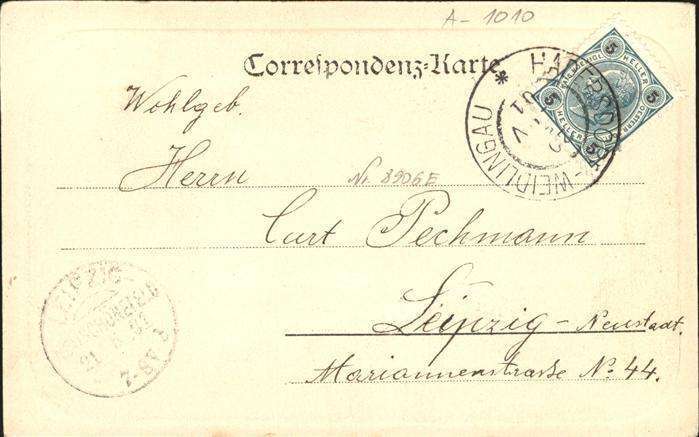 A- 1010
Correspondenz-Karte
5 HELLER
HADERSDORF-WEIDLINGAU *
Wohlgeb.
Herrn
Nr 8906E
Curt Pechmann
Leipzig - Neustadt.
Mariannenstrasse No. 44.
LEIPZIG